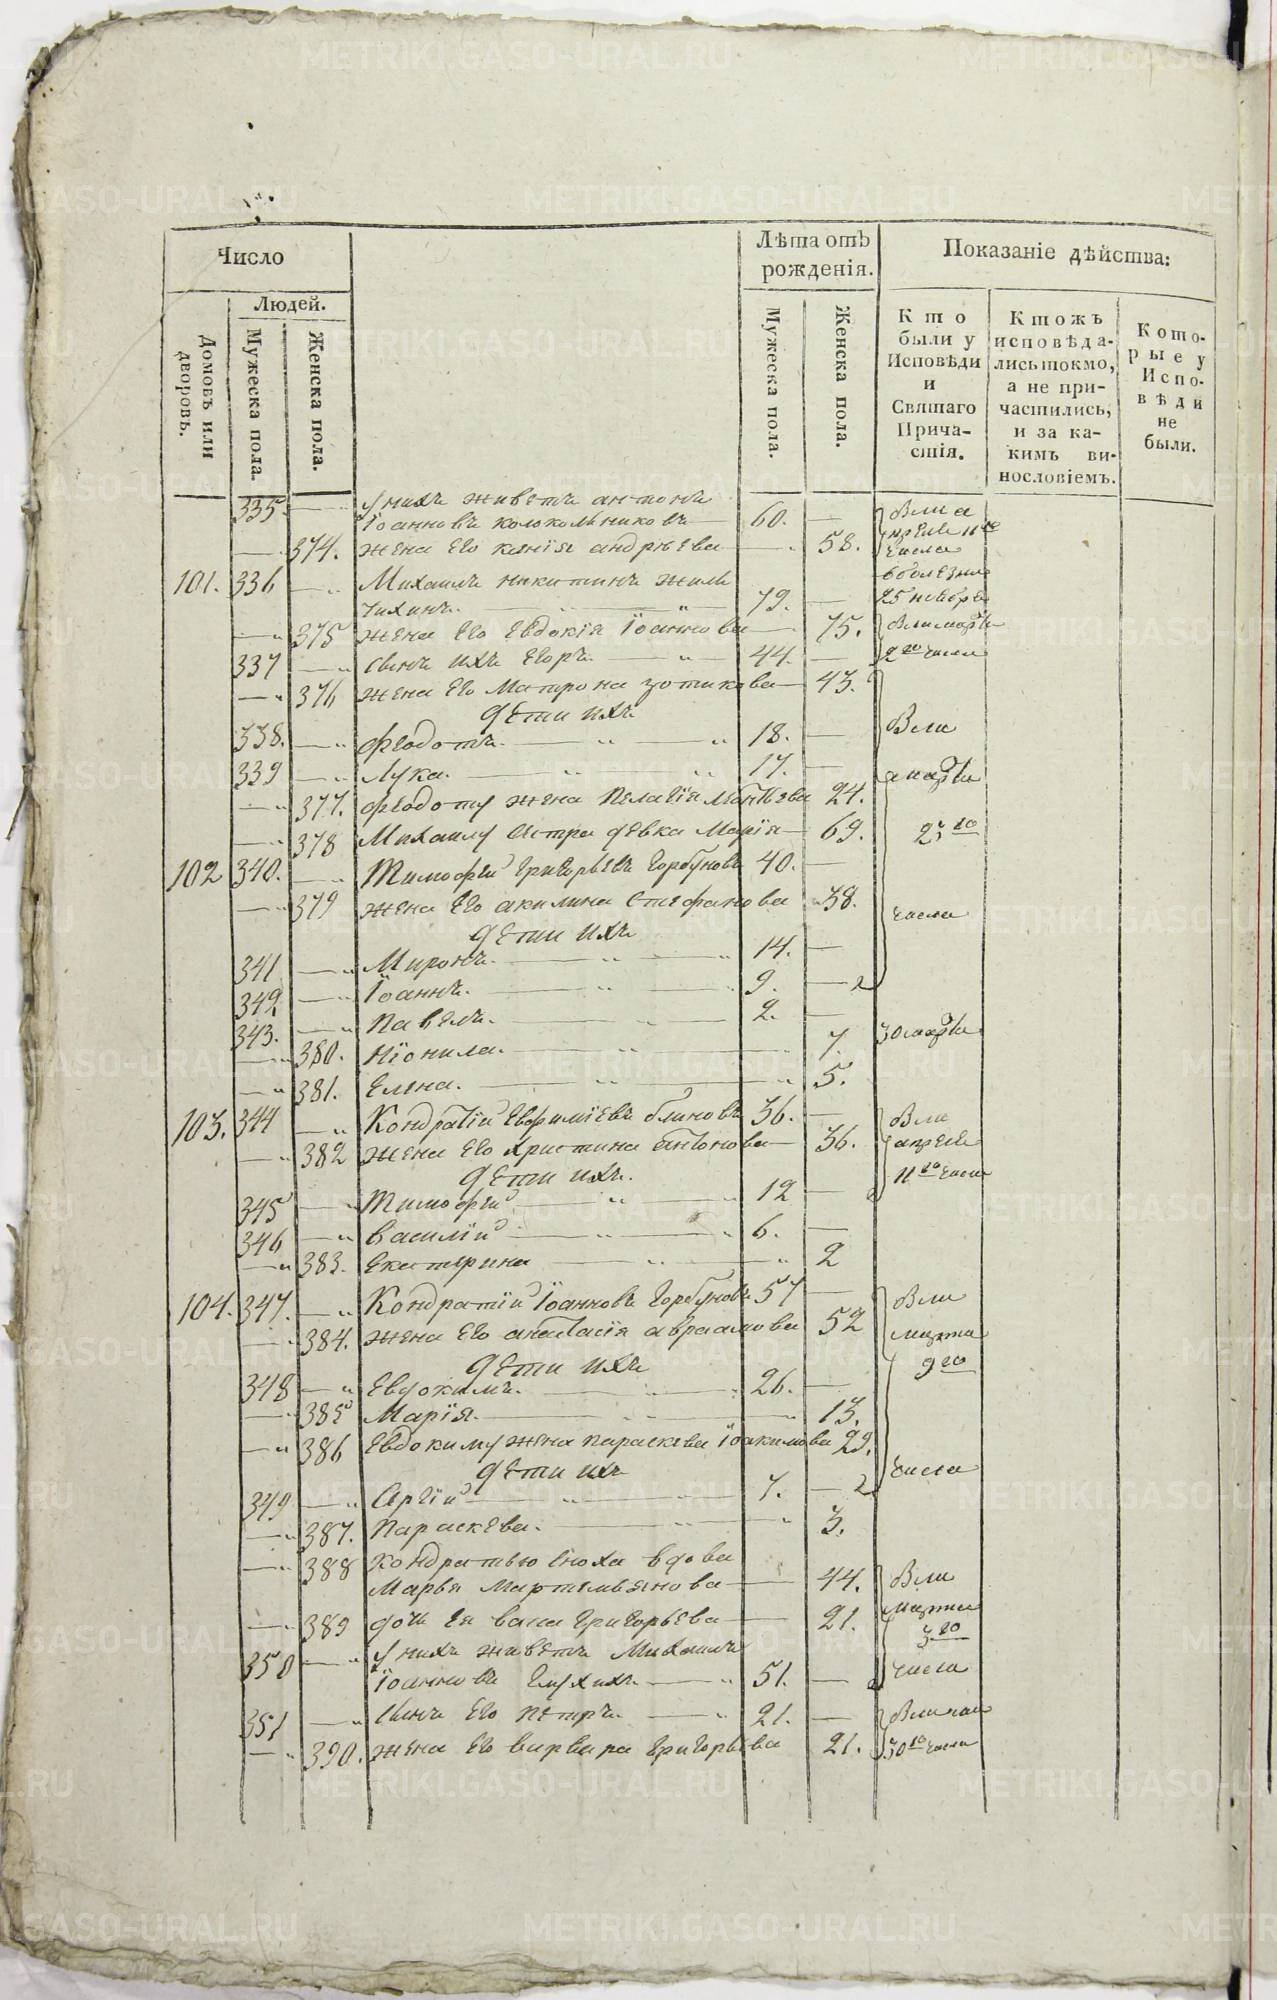 Число
Лѣта отъ рожденія.
Показаніе дѣйства:
Людей.
Домовъ или дворовъ.
Мужеска пола.
Женска пола.
Мужеска пола.
Женска пола.
Кто были у Исповѣди и Святаго Причастія.
Ктожъ исповѣдались токмо, а не причастились, и за какимъ винословіемъ.
Которые у Исповѣди не были.
335. у нихъ живетъ антонъ
Іоанновъ колокольниковъ 60.
374. жена его ксенія андрѣева 58.
101. 336 Михаилъ никитинъ жиль
чихинъ. 79.
375 жена его Евдокія Іоаннова 75.
337 сынъ ихъ Егоръ. 44.
376 жена его Матрона зотикова 43.
дети ихъ
338. феодотъ. 18.
339 Лука. 17.
377. феодоту жена Пелагія Матвѣева 24.
378 Михаилу сестра девка Марія 69.
102 340. Тимофей Григорьевъ Горбуновъ 40.
379 жена его акилина Стефанова 38.
дети ихъ
341 Миронъ. 14.
342 Іоаннъ. 9.
343. Павелъ. 2.
380.Ніонила. 7.
381. Елена. 5.
103. 344 Кондратій Евфиміевъ блиновъ 36.
382 жена его христина антонова 36.
дети ихъ.
345 Тимофей 12
346 Василій 6.
383. Екатерина 2
104. 347. Кондратій Іоанновъ Горбуновъ 57
384. жена его анастасія авраамова 52
дети ихъ
348 Евдокимъ. 26.
385 Марія. 13.
386 Евдокиму жена параскева Іоакимова 29.
дети ихъ
349 Сергій 7.
387. Параскева. 3.
388 кондратью сноха вдова
Марья Мартемьянова 44.
389 дочь ея васа Григорьева 21.
350 у нихъ живетъ Михаилъ
Іоанновъ Глухихъ 51.
351 сынъ его петръ. 21.
390. жена его варвара Григорьева 21.
Были
марта
23 го
числа
30 марта
Были
апреля
11 го числа
Были
марта
9 го
числа
Были
марта
3 го
числа
METRIKI.GASO-URAL.RU